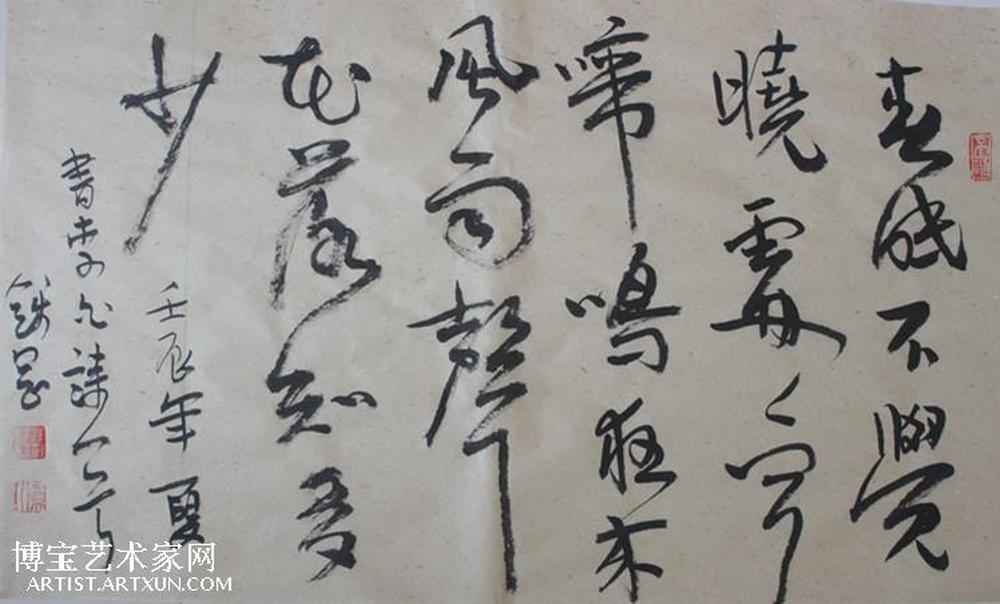 春眠不覺
曉處〻聞
啼鳴夜来
風雨聲
花落知多
少
壬辰年夏
書李白詩一首
博宝艺术家网
ARTIST.ARTXUN.COM